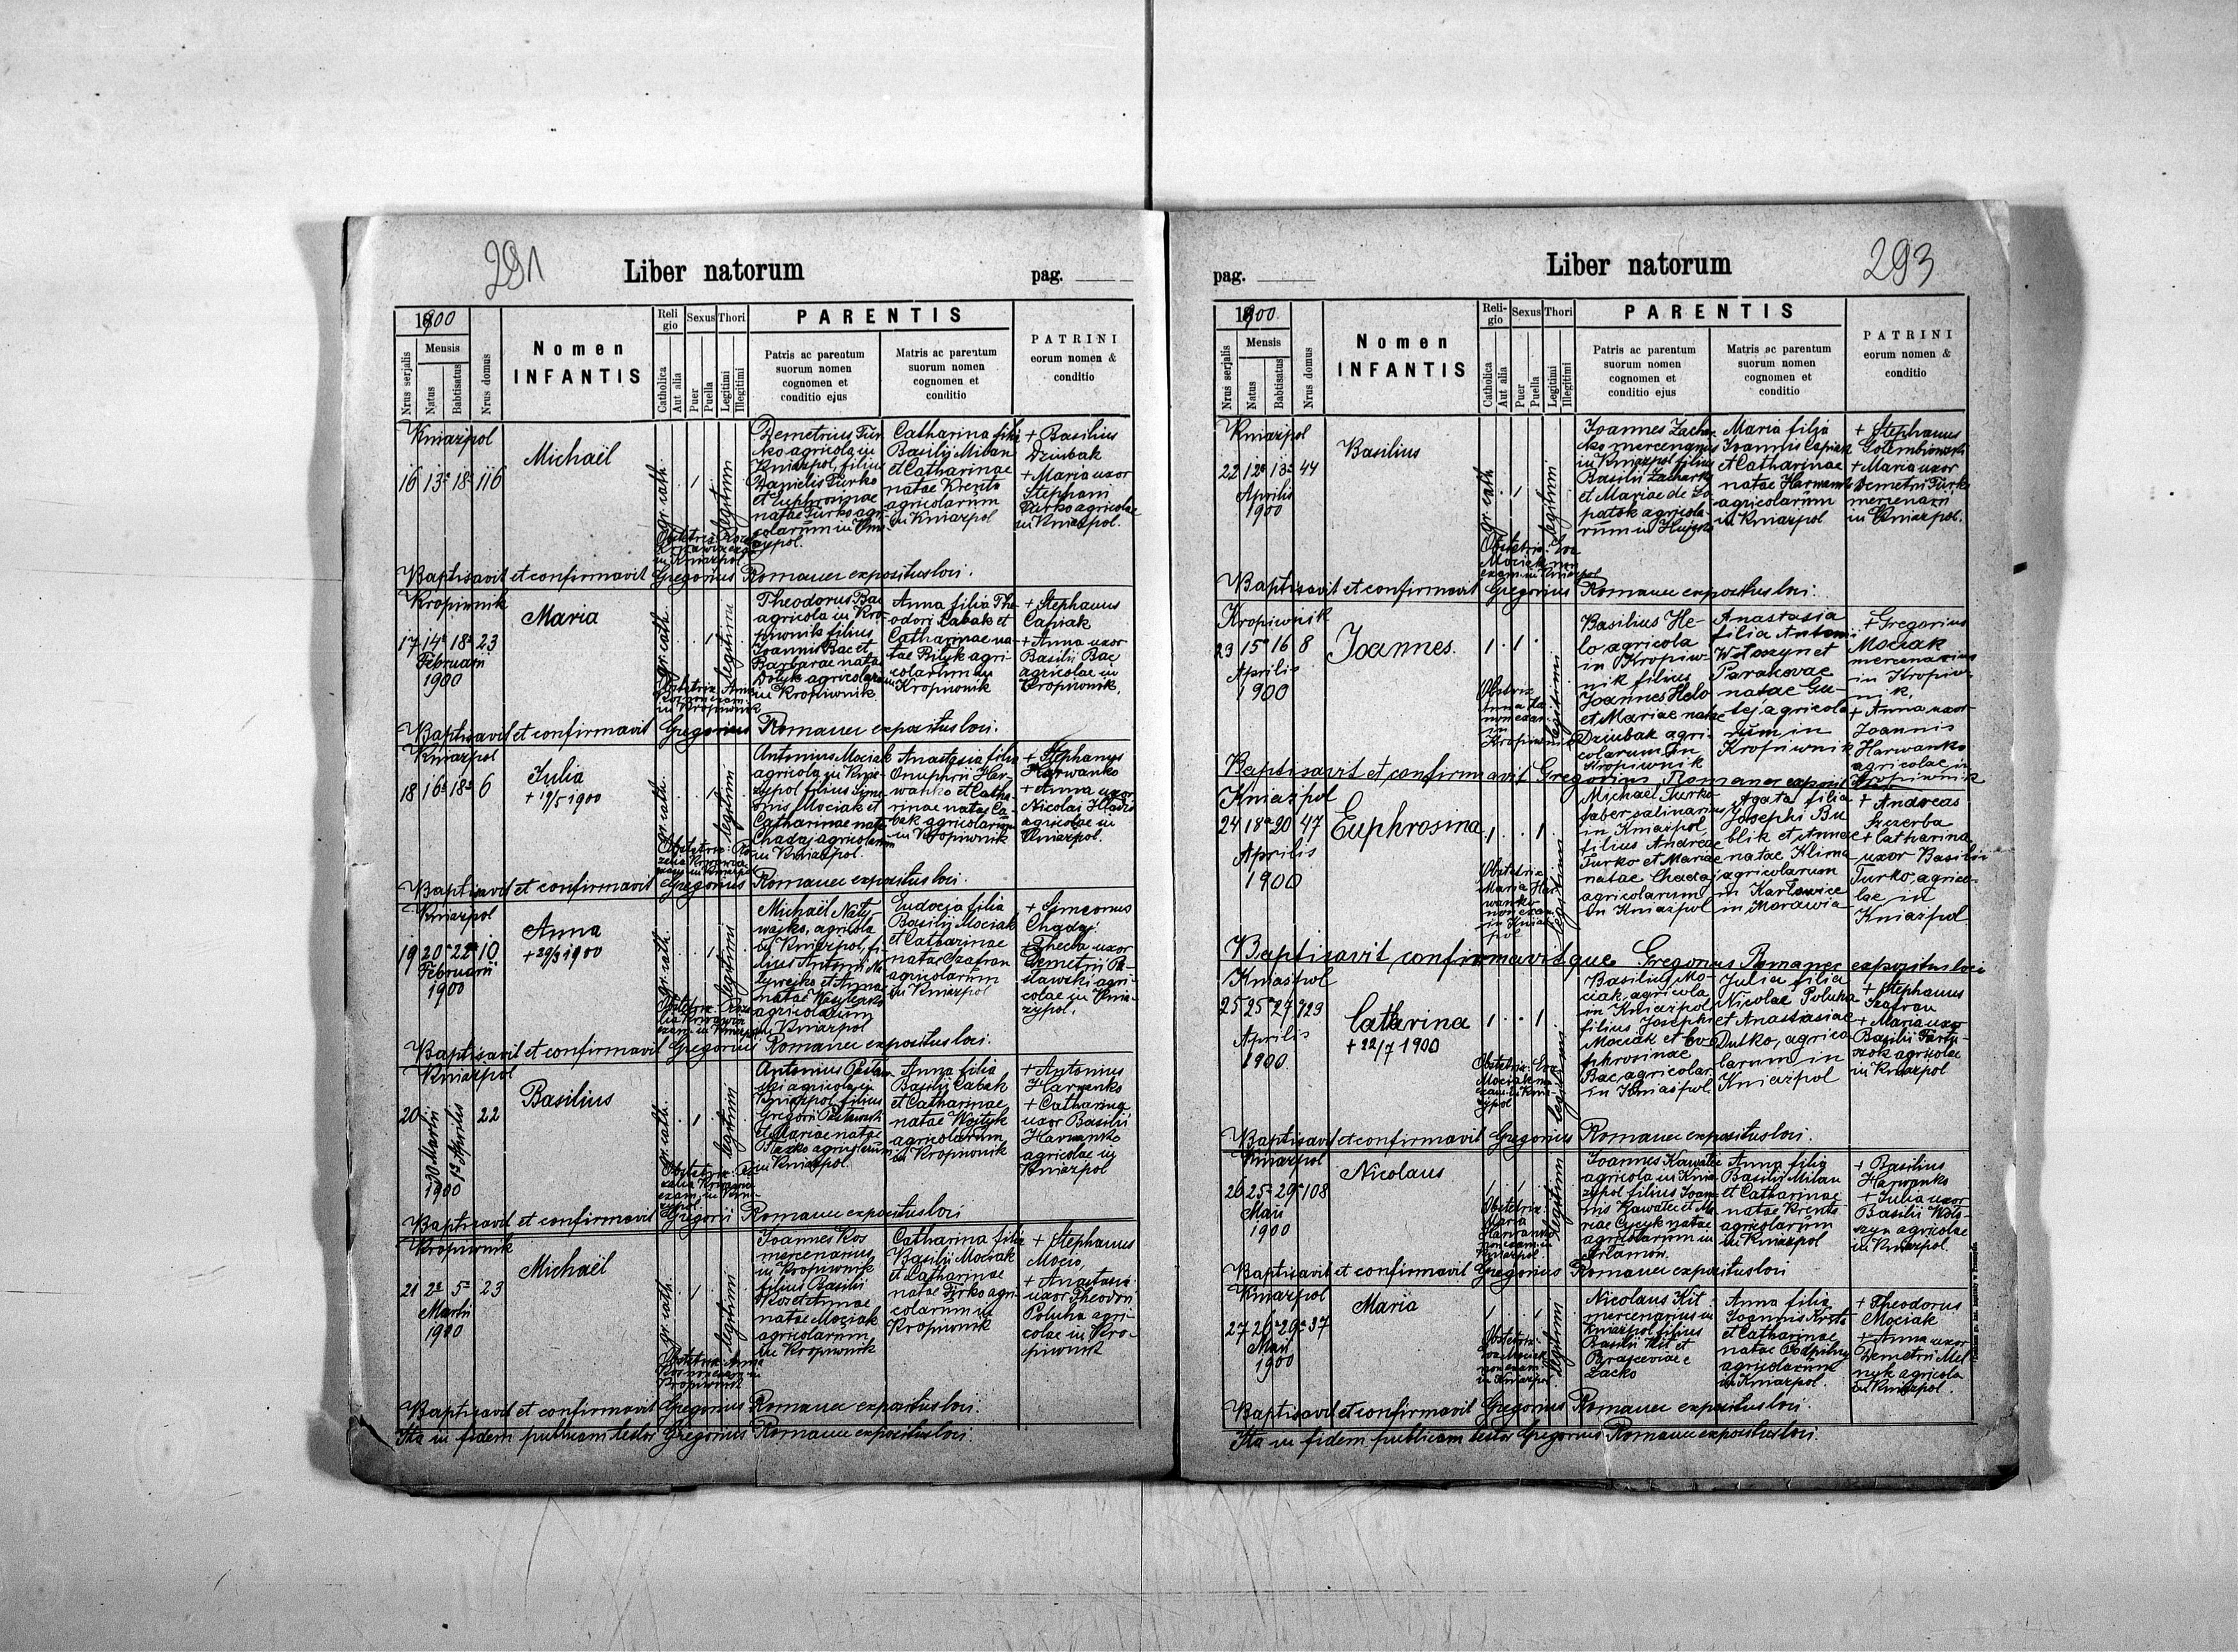 291
Liber natorum
pag.
1900
Nrus serjalis
Mensis
Natus
Babtisatus
Nrus domus
Nomen
INFANTIS
Reli
gio
Catholica
Aut alia
Sexus
Puer
Puella
Thori
Legitimi
Illegitimi
PARENTIS
Patris ac parentum
suorum nomen
cognomen et
conditio ejus
Matris ac parentum
suorum nomen
cognomen et
conditio
PATRINI
eorum nomen &
conditio
Kniazpol
16 13 18 116
Michaël
gr. cath.
legitimi
Demetrius Tur
ko agricola in
Kniazpol, filius
Danielis Turko
et Euphrosinae
natae Turko agri
colarum in Knia
zypol.
Catharina filia
Basilii Milan
et Catharinae
natae Krento
agricolarum
in Kniazpol
+ Basilius
Dziubak
+ Maria uxor
Stephani
Turko agricolae
in Kniazpol.
Baptisavit et confirmavit Gregorius Romaner expositus loci.
Kropiwnik
17 14 18 23
Februarii
1900
Maria
gr. cath.
legitimi
Theodorus Bac
agricola in Kro-
piwnik filius
Joannis Bac et
Barbarae natae
agricolarum
in Kropiwnik
Anna filia The-
odori Cabak et
Catharinae na-
tae Bilyk agri-
colarum in
Kropiwnik
+ Stephanus
Capiak
+ Anna uxor
Basilii Bac
agricolae in
Kropiwnik
Baptisavit et confirmavit Gregorius Romaner expositus loci.
Kniazpol
18 16 18 6
Julia
+ 19/5 1900
gr. cath.
legitimi
Antonius Mociak
agricola in Knia-
zypol filius Simeo
nis Mociak et
Catharinae natae
Chadaj agricolarum
in Kniazpol.
Anastasia filia
Onuphrii Har-
wanko et Catha-
rinae natae Ca-
bak agricolarum
in Kropiwnik
+ Stephanus
Harwanko
+ Anna uxor
Nicolai
agricolae in
Kniazpol.
Baptisavit et confirmavit Gregorius Romaner expositus loci.
Kniazpol
19 20 22 10
Februarii
1900
Anna
+ 29/3 1900
gr. cath.
legitimi
Michaël Naty-
wajko, agricola
in Kniazpol, fi-
lius Antonii Na
tywajko et Annae
natae
agricolarum
in Kniazpol
Eudocia filia
Basilii Mociak
et Catharinae
natae Szafran
agricolarum
in Kniazpol
+ Simeonus
Chadaj
+ Thecla uxor
Demetrii Pa-
slawski agri-
colae in Knia-
zypol.
Baptisavit et confirmavit Gregorius Romaner expositus loci.
Kniazpol
20 30 Martii 1 Aprilis 22
1900
Basilius
gr. cath.
legitimi
Antonius Paslaw-
ski agricola in
Kniazpol, filius
Gregorii Paslawski
et Mariae natae
agricolarum
in Kniazpol.
Anna filia
Basilii Cabak
et Catharinae
natae Wojtyk
agricolarum
in Kropiwnik
+ Antonius
Harwanko
+ Catharina
uxor Basilii
Harwanko
agricolae in
Kniazpol
Baptisavit et confirmavit Gregorii Romaner expositus loci
Kropiwnik
21 2 5 23
Martii
1900
Michaël
gr. cath.
legitimi
Joannes Kos
mercenarius
in Kropiwnik
filius Basilii
Kos et Annae
natae Mociak
agricolarum
in Kropiwnik
Catharina filia
Basilii Mociak
et Catharinae
natae Turko agri-
colarum in
Kropiwnik
+ Stephanus
Mocio,
+ Anastasia
uxor Theodori
Poluha agri-
colae in Kro-
piwnik
Baptisavit et confirmavit Gregorius Romaner expositus loci.
Ita in fidem publicam testor Gregorius Romaner expositus loci.
293
Liber natorum
pag.
1900.
Nrus serjalis
Mensis
Natus
Babtisatus
Nrus domus
Nomen
INFANTIS
Reli-
gio
Catholica
Aut alia
Sexus
Puer
Puella
Thori
Legitimi
Illegitimi
PARENTIS
Patris ac parentum
suorum nomen
cognomen et
conditio ejus
Matris ac parentum
suorum nomen
cognomen et
conditio
PATRINI
eorum nomen &
conditio
Kniazpol
22 12 13 44
Aprilis
1900
Basilius
gr. cath.
legitimi
Joannes Zachar-
ko mercenarius
in Kniazpol filius
Basilii Zacharko
et Mariae de Lo
patok agricola-
rum in
Maria filia
Joannis Capiak
et Catharinae
natae Harwanko
agricolarum
in Kniazpol
+ Stephanus
Golembiowski
+ Maria uxor
Demetrii Turko
mercenarii
in Kniazpol.
Baptisavit et confirmavit Gregorius Romaner expositus loci.
Kropiwnik
23 15 16 8
Aprilis
1900
Joannes.
legitimi
Basilius He-
lo agricola
in Kropiw-
nik filius
Joannes Helo
et Mariae natae
Dziubak agri-
colarum in
Kropiwnik
Anastasia
filia Antoni
Woloszyn et
Parakevae
natae Gu-
lej agricola
rum in
Kropiwnik
+ Gregorius
Mociak
mercenarius
in Kropiw-
nik,
+ Anna uxor
Joannis
Harwanko
agricolae in
Kropiwnik
Baptisavit et confirmavit Gregorius Romaner exposit loci
Kniazpol
24 18 20 47
Aprilis
1900
Euphrosina
legitimi
Michael Turko
faber salinarius
in Kniazpol,
filius Andreae
Turko et Mariae
natae Chadaj
agricolarum
in Kniazpol
Agata filia
Josephi Bu
blik et Annae
natae Klima
agricolarum
in Karlowice
in Morawia
+ Andreas
Szczerba
+ Catharina
uxor Basilii
Turko, agrico-
lae in
Kniazpol
Baptisavit, confirmavitque Gregorius Romaner expositus loci
Kniazpol
25 25 27 129
Aprilis
1900
Catharina
+ 22/7 1900
legitimi
Basilius Mo-
ciak agricola
in Kniazpol
filius Josephi
Mociak et Eu-
phrosinae
Bac agricolar.
in Kniazpol
Julia filia
Nicolae Poluha
et Anastasiae
Dutko, agrico
larum in
Kniazpol
+ Stephanus
Szafran
+ Maria uxor
Basilii
agricolae
in Kniazpol
Baptisavit et confirmavit Gregorius Romaner expositus loci.
Kniazpol
26 25 29 108
Maii
1900
Nicolaus
legitimi
Joannes Kawalec
agricola in Knia-
zypol filius Joan-
nis Kawalec et Ma-
riae Cycyk natae
agricolarum in
Artamow.
Anna filia
Basilii Milan
et Catharinae
natae Krento
agricolarum
in Kniazpol
+ Basilius
Harwanko
+ Julia uxor
Basilii Wolo-
szyn agricolae
in Kniazpol.
Baptisavit et confirmavit Gregorius Romaner expositus loci
Kniazpol
27 26 29 37
Maii
1900
Maria
legitimi
Nicolaus Kit
mercenarius in
Kniazpol filius
Basilii Kit et
Parasceviae e
Zacko
Anna filia
Joannis Krento
et Catharinae
natae
agricolarum
in Kniazpol.
+ Theodorus
Mociak
+ Anna uxor
Demetrii Mel
nyk agricola
in Kniazpol.
Baptisavit et confirmavit Gregorius Romaner expositus loci.
Ita in fidem publicam testor Gregorius Romaner expositus loci.